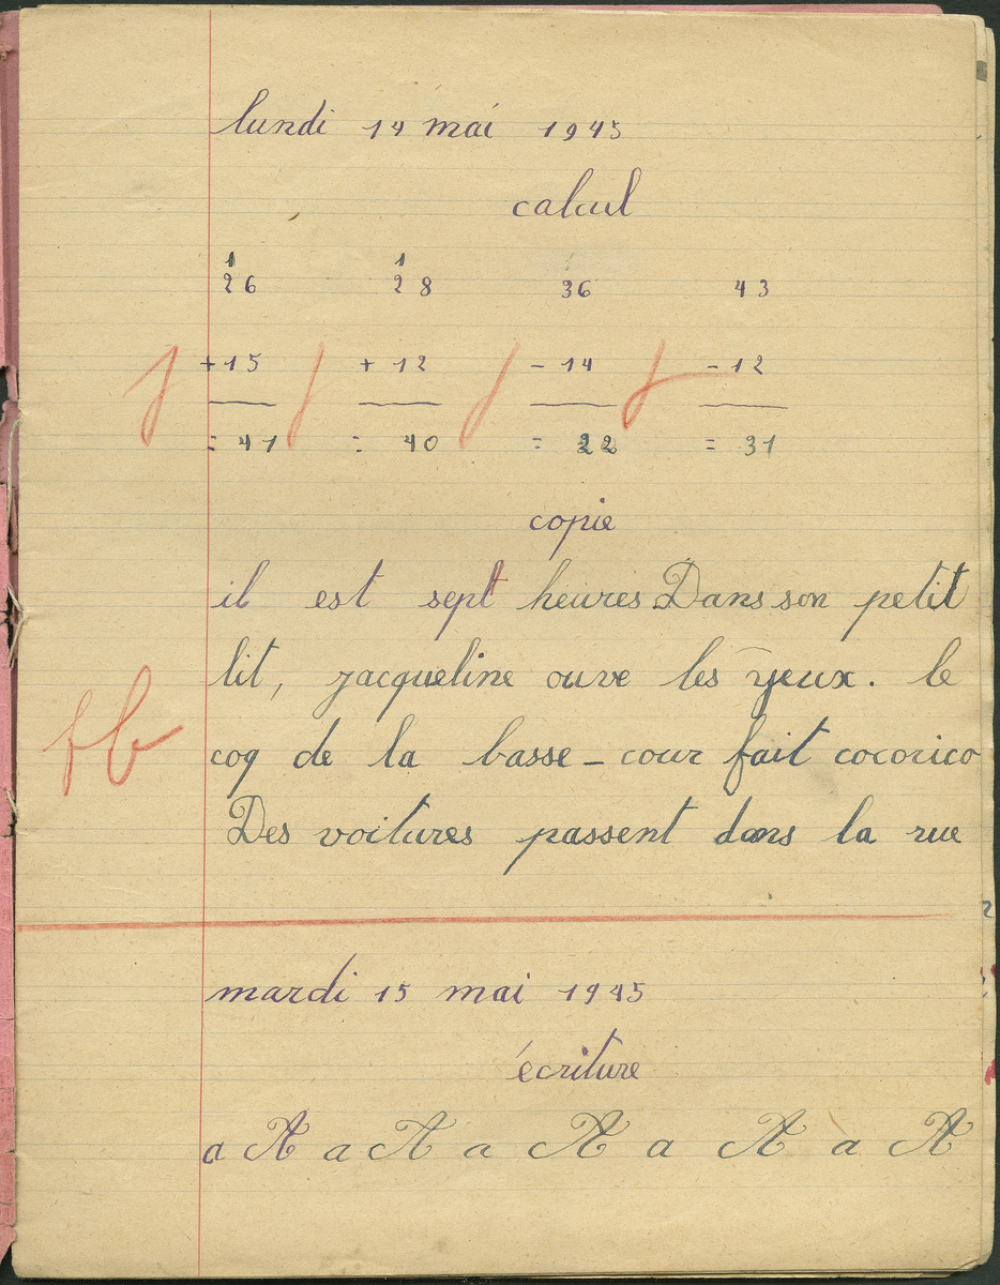 lundi 14 mai 1945
calcul
1 1
26 28 36 43
+15 + 12 - 14 - 12
= 41 = 40 = 22 = 31
copie
il est sept heures Dans son petit
lit, jacqueline ouve les yeux. le
tb coq de la basse-cour fait cocorico
Des voitures passent dans la rue
mardi 15 mai 1945
écriture
a A a A a A a A a A